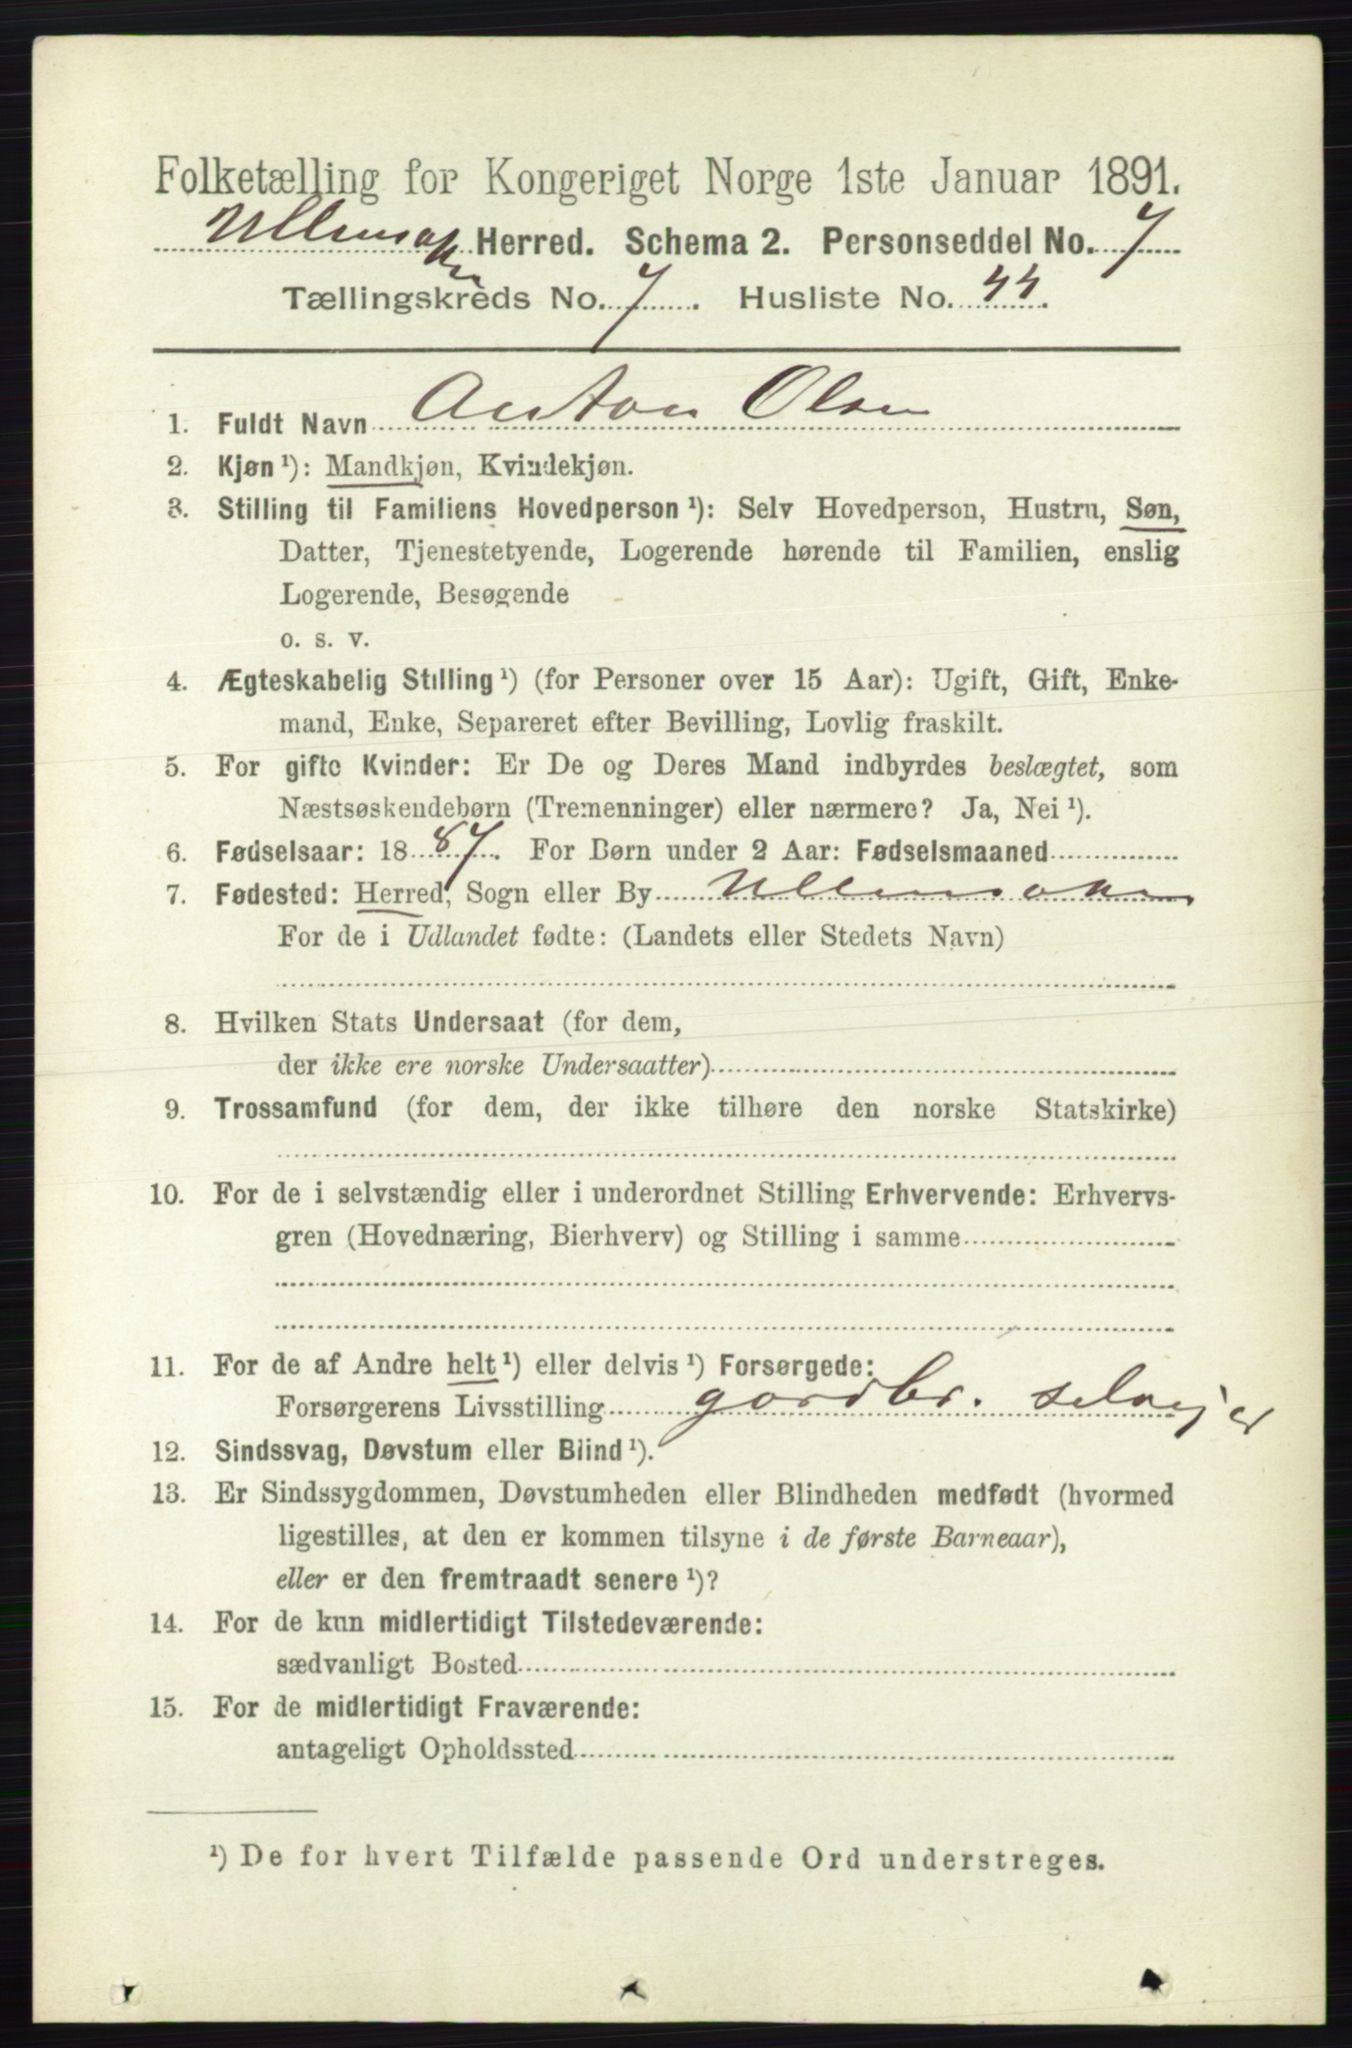 Folketælling for Kongeriget Norge 1ste Januar 1891.
Ullensaker Herred. Schema 2. Personseddel No. 7
Tællingskreds No. 7. Husliste No. 44.
1. Fuldt Navn Anton Olsen
2. Kjøn¹): Mandkjøn, Kvindekjøn.
3. Stilling til Familiens Hovedperson¹): Selv Hovedperson, Hustru, Søn,
Datter, Tjenestetyende, Logerende hørende til Familien, enslig
Logerende, Besøgende
o. s. v.
4. Ægteskabelig Stilling¹) (for Personer over 15 Aar): Ugift, Gift, Enke-
mand, Enke, Separeret efter Bevilling, Lovlig fraskilt.
5. For gifte Kvinder: Er De og Deres Mand indbyrdes beslægtet, som
Næstsøskendebørn (Tremenninger) eller nærmere? Ja, Nei¹).
6. Fødselsaar: 1887. For Børn under 2 Aar: Fødselsmaaned
7. Fødested: Herred, Sogn eller By Ullensaker
For de i Udlandet fødte: (Landets eller Stedets Navn)
8. Hvilken Stats Undersaat (for dem,
der ikke ere norske Undersaatter)
9. Trossamfund (for dem, der ikke tilhøre den norske Statskirke)
10. For de i selvstændig eller i underordnet Stilling Erhvervende: Erhvervs-
gren (Hovednæring, Bierhverv) og Stilling i samme
11. For de af Andre helt¹) eller delvis¹) Forsørgede:
Forsørgerens Livsstilling gordbr. selvejer
12. Sindssvag, Døvstum eller Blind¹).
13. Er Sindssygdommen, Døvstumheden eller Blindheden medfødt (hvormed
ligestilles, at den er kommen tilsyne i de første Barneaar),
eller er den fremtraadt senere¹)?
14. For de kun midlertidigt Tilstedeværende:
sædvanligt Bosted
15. For de midlertidigt Fraværende:
antageligt Opholdssted
¹) De for hvert Tilfælde passende Ord understreges.